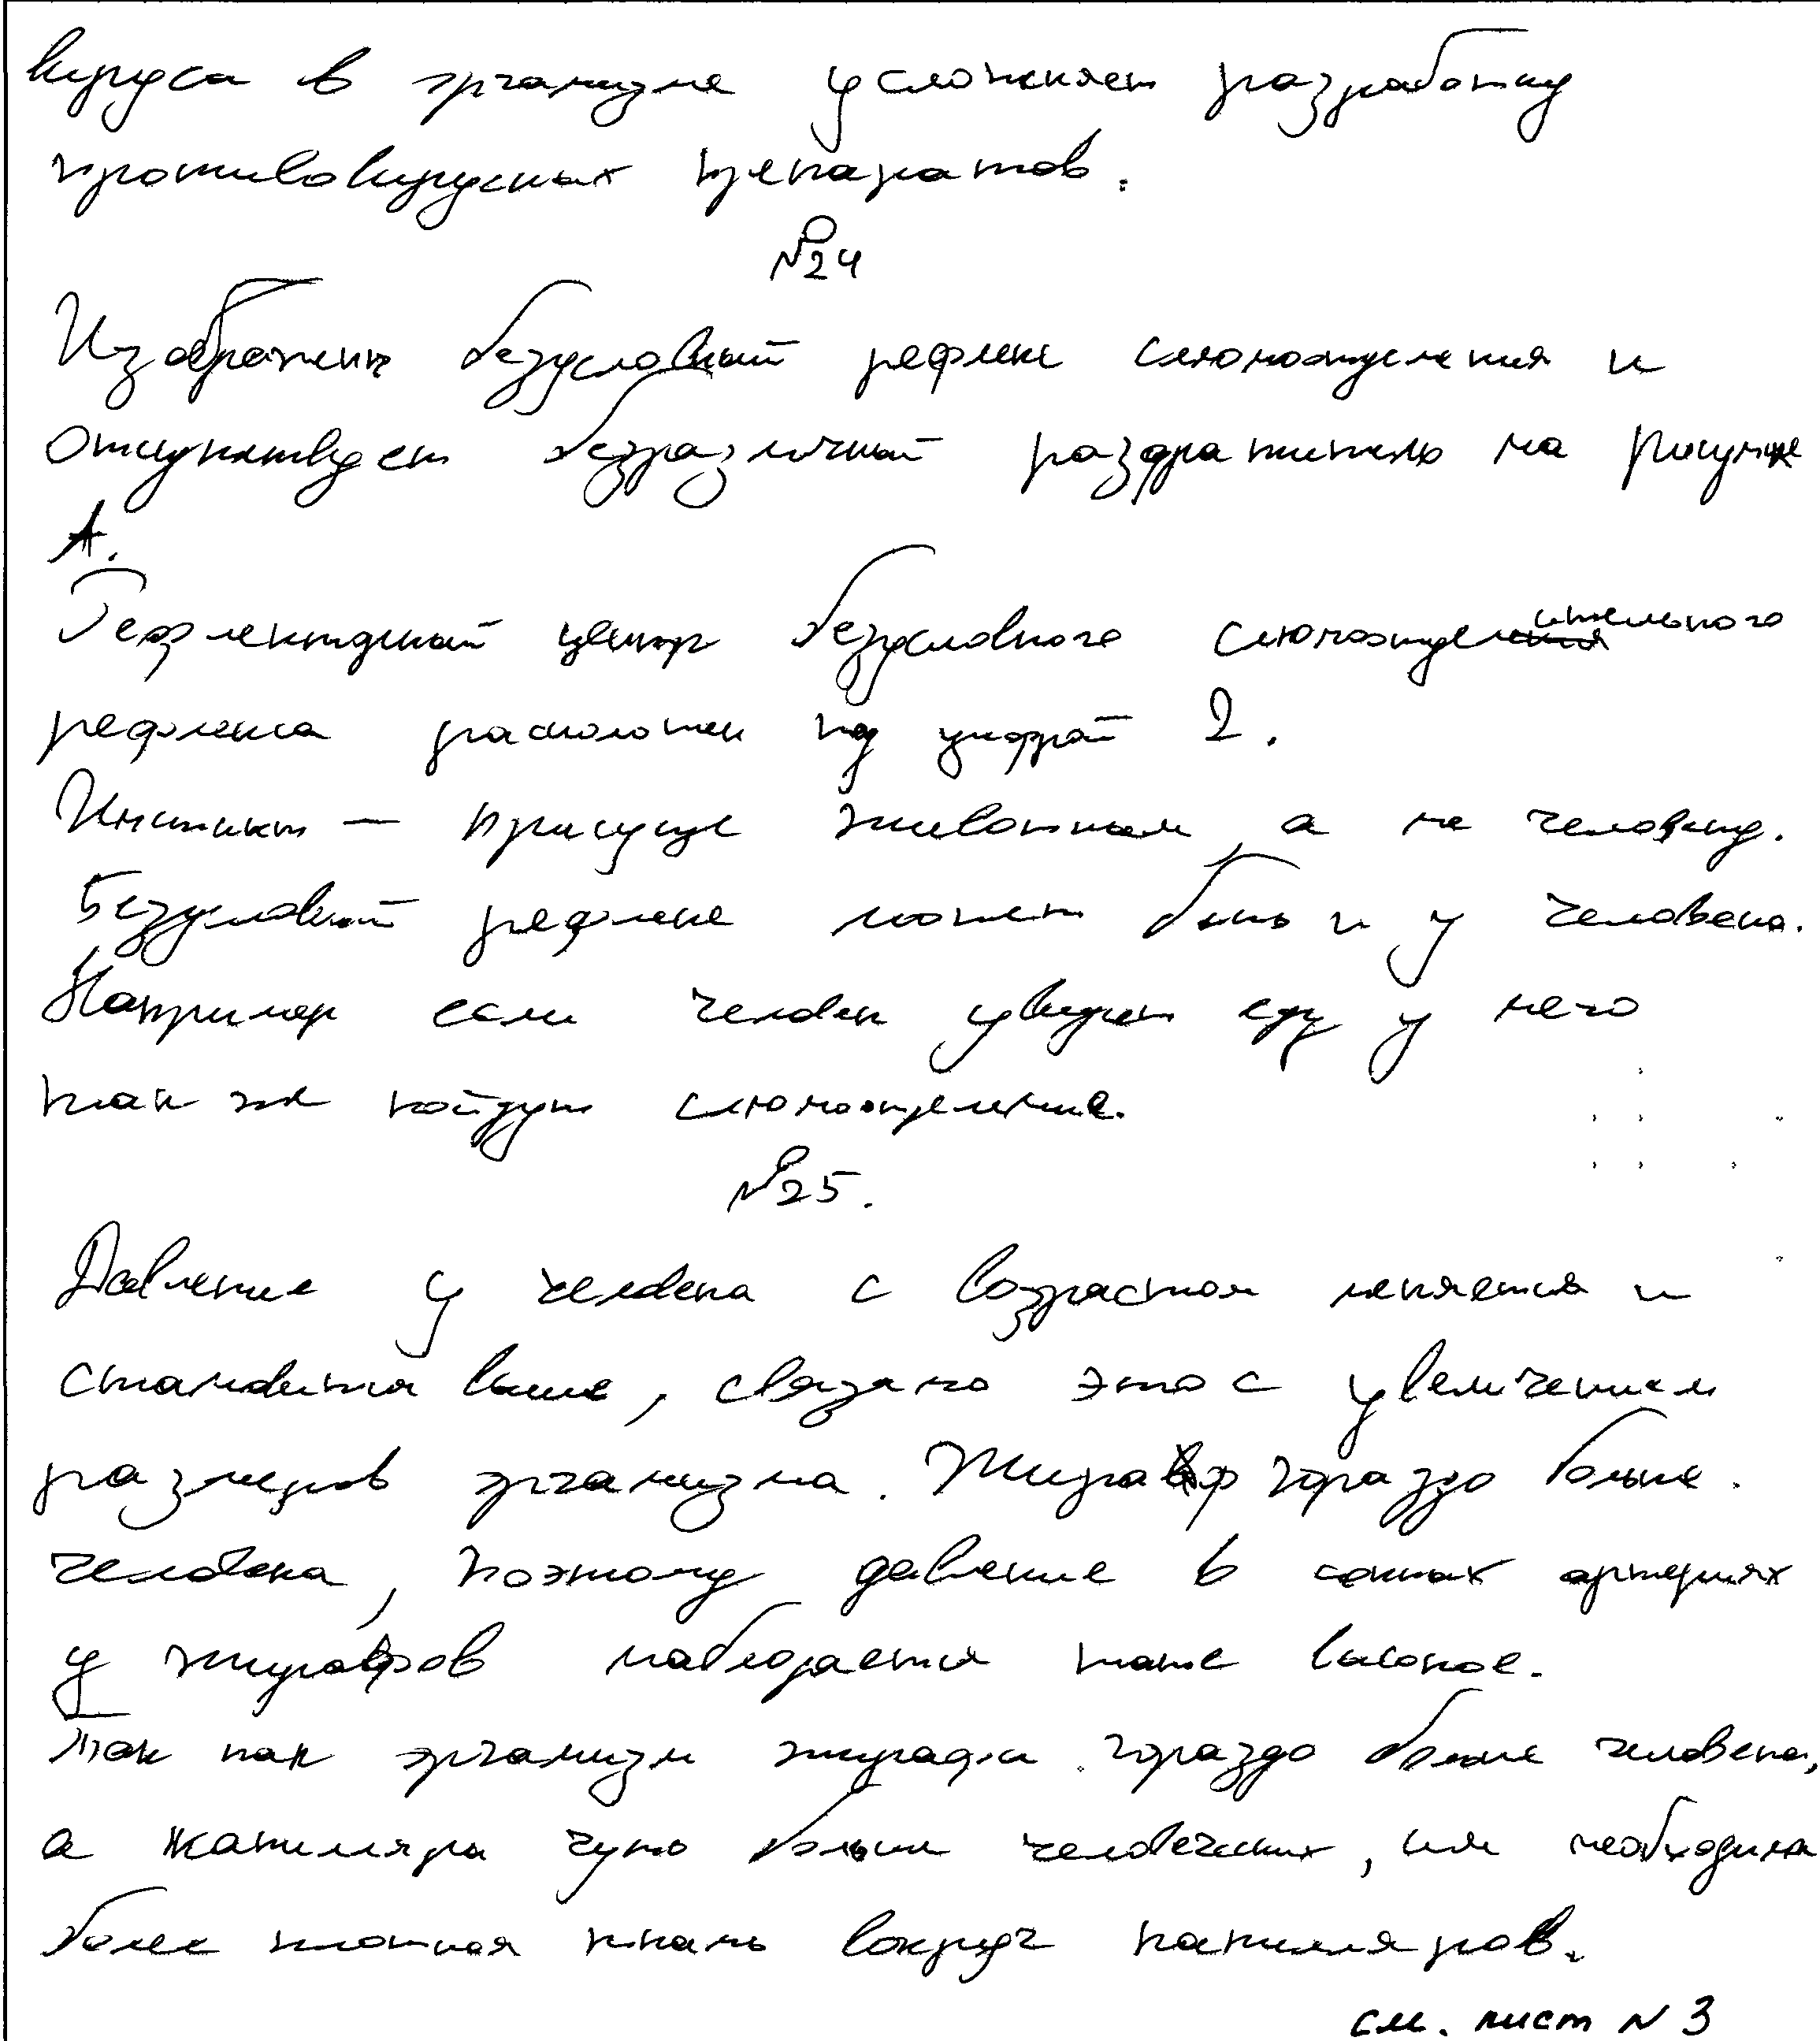 вируса в организме усложняет разработку
противовирусных препаратов.
№24
Изображен безусловный рефлекс слюноотделения и
отсутствует безразличный раздражитель на рисунке
А.
Рефлекторный центр безусловного слюноотделительного
рефлекса расположен под цифрой 2.
Инстинкт — присущ животным, а не человеку.
Безусловный рефлекс может быть и у человека.
Например если человек увидит еду у него
так же пойдут слюноотделение.
№25.
Давление у человека с возрастом меняется и
становится выше, связано это с увеличением
размеров организма. Жираф гораздо больше
человека, поэтому давление в сонных артериях
у жирафов наблюдается такое высокое.
Так как организм жирафа гораздо больше человека,
а капилляры чуть больше человеческих, им необходима
более плотная ткань вокруг капилляров.
см. лист N 3